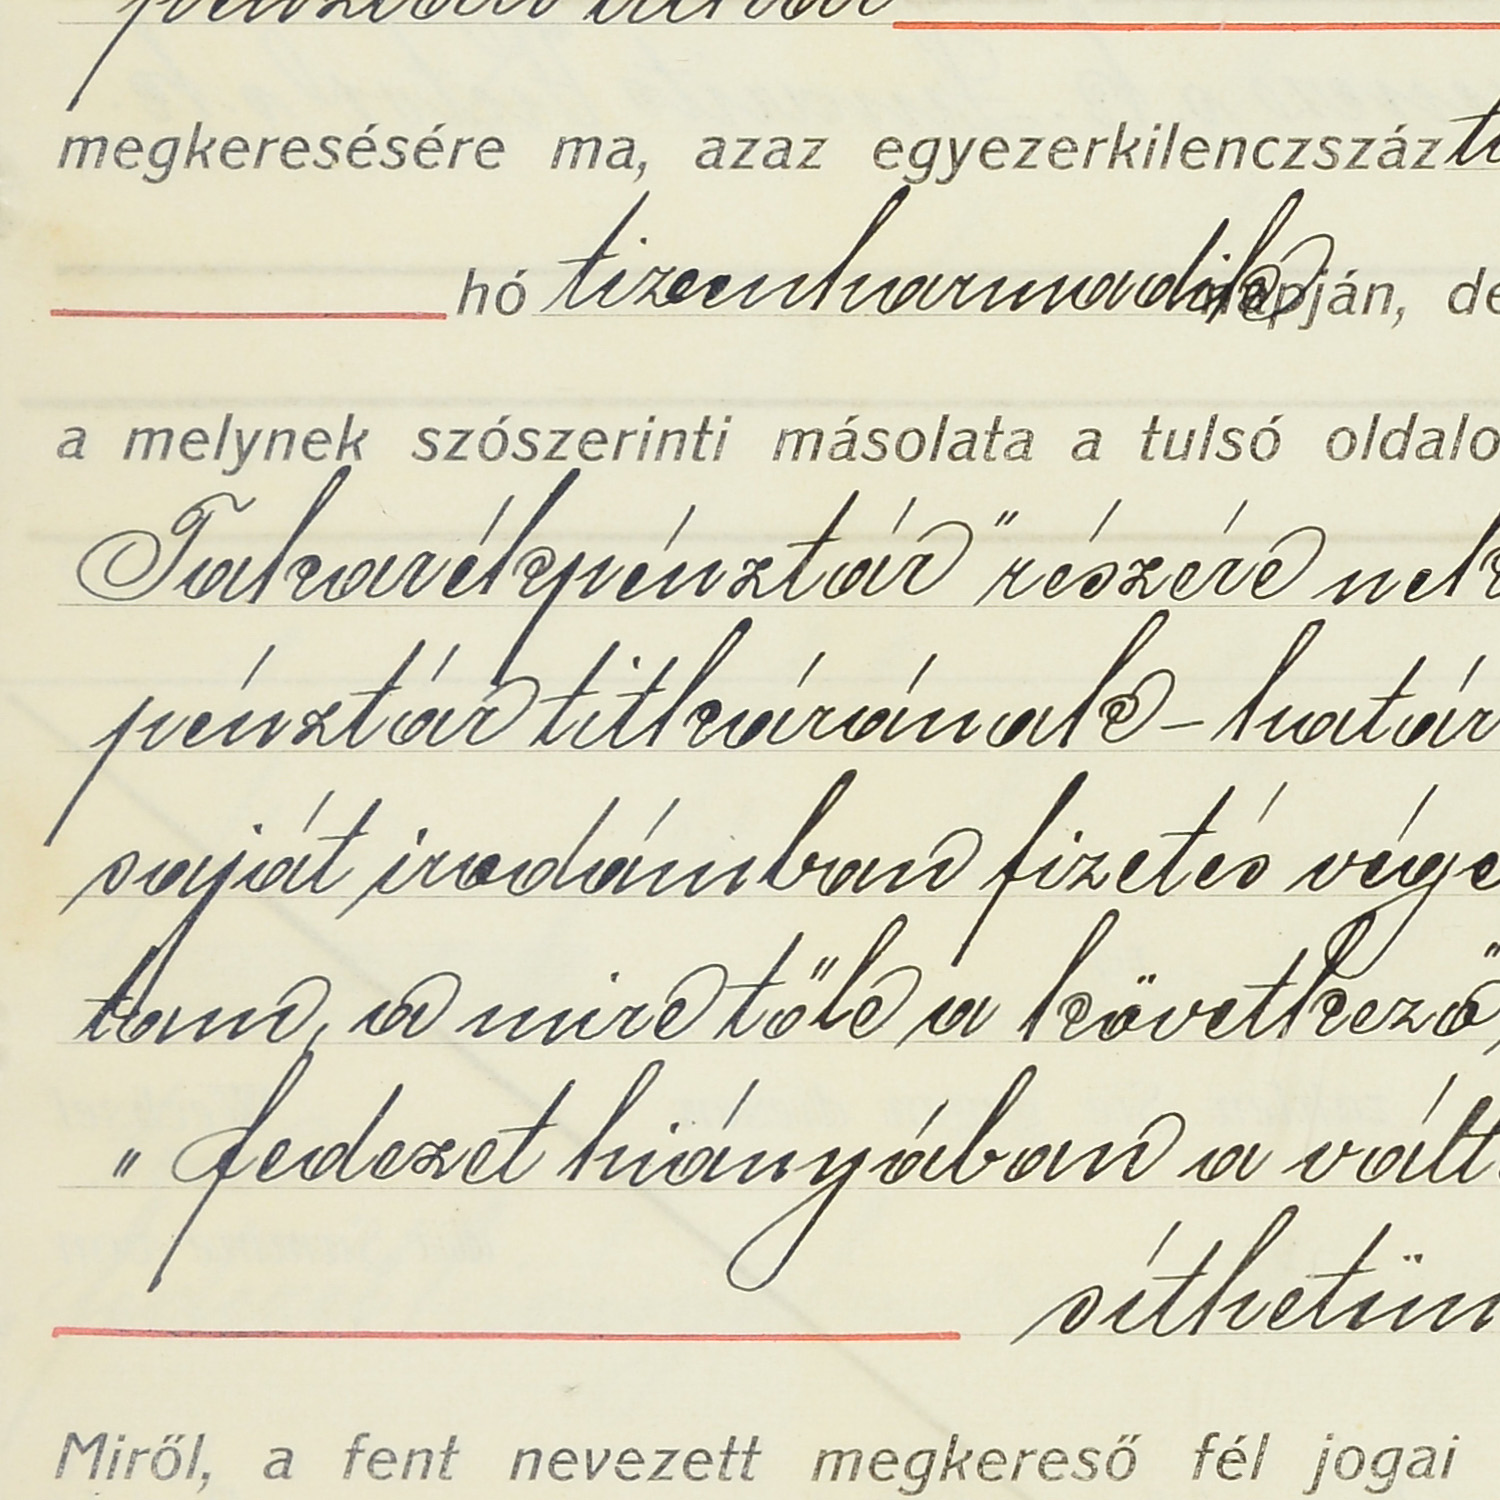 pénztár titkár
megkeresésére ma, azaz egyezerkilenczszáz
hó tizenharmadik napján,
a melynek szószerinti másolata a tulsó
Takarékpénztár" részére
pénztár titkárának – határ
saját irodámban fizetés vége
tam, a mire tőle a következő
„ fedezet hiányában a vált
síthetün
Miről, a fent nevezett megkereső fél jogai